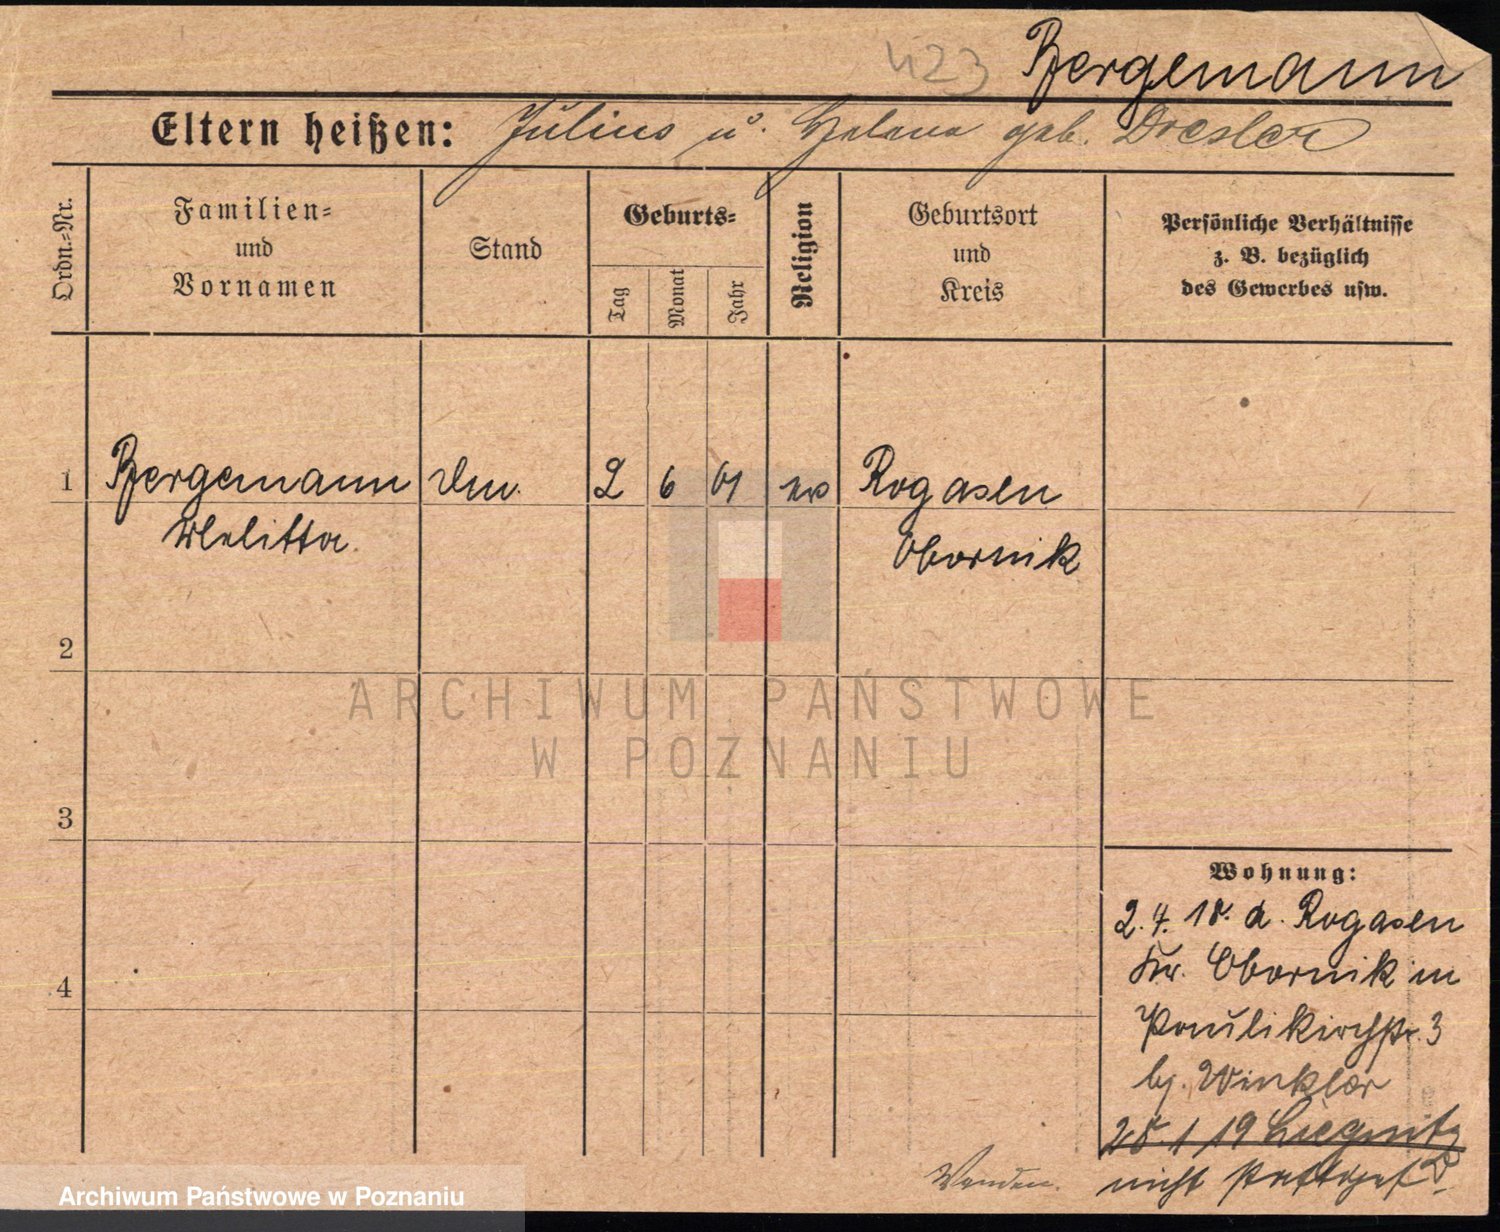 423 Bergemann
Eltern heißen: Julius u. Helene geb. Dresler
Ordn.=Nr.
Familien=
und
Vornamen
Stand
Geburts=
Tag
Monat
Jahr
Religion
Geburtsort
und
Kreis
Persönliche Verhältnisse
z. B. bezüglich
des Gewerbes usw.
1 Bergemann 2 6 01 ev Rogasen
Melitta Obornik
2
3
4
ARCHIWUM PAŃSTWOWE
W POZNANIU
Wohnung:
2.4.18. a. Rogasen
Kr. Obornik in
Paulikirchstr. 3
bj. Winkler
28. 1 19 Liegnitz
nicht stattgef
Wenden.
Archiwum Państwowe w Poznaniu